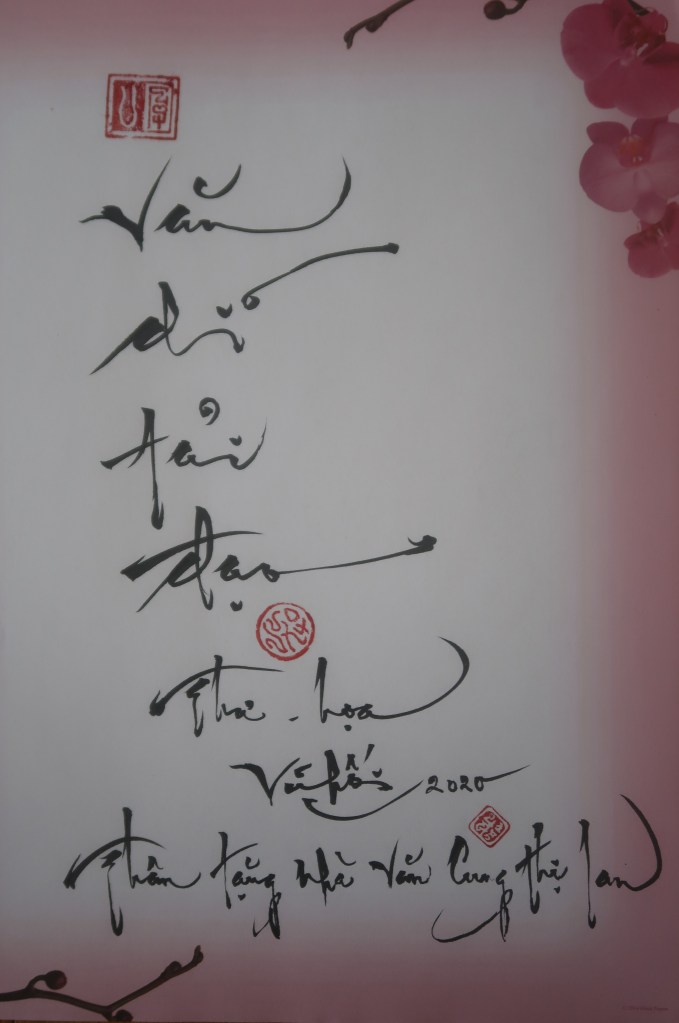 Văn
dĩ
tải
đạo
Thi - họa
Vũ Hối 2020
Thân tặng nhà văn Cung thị lan